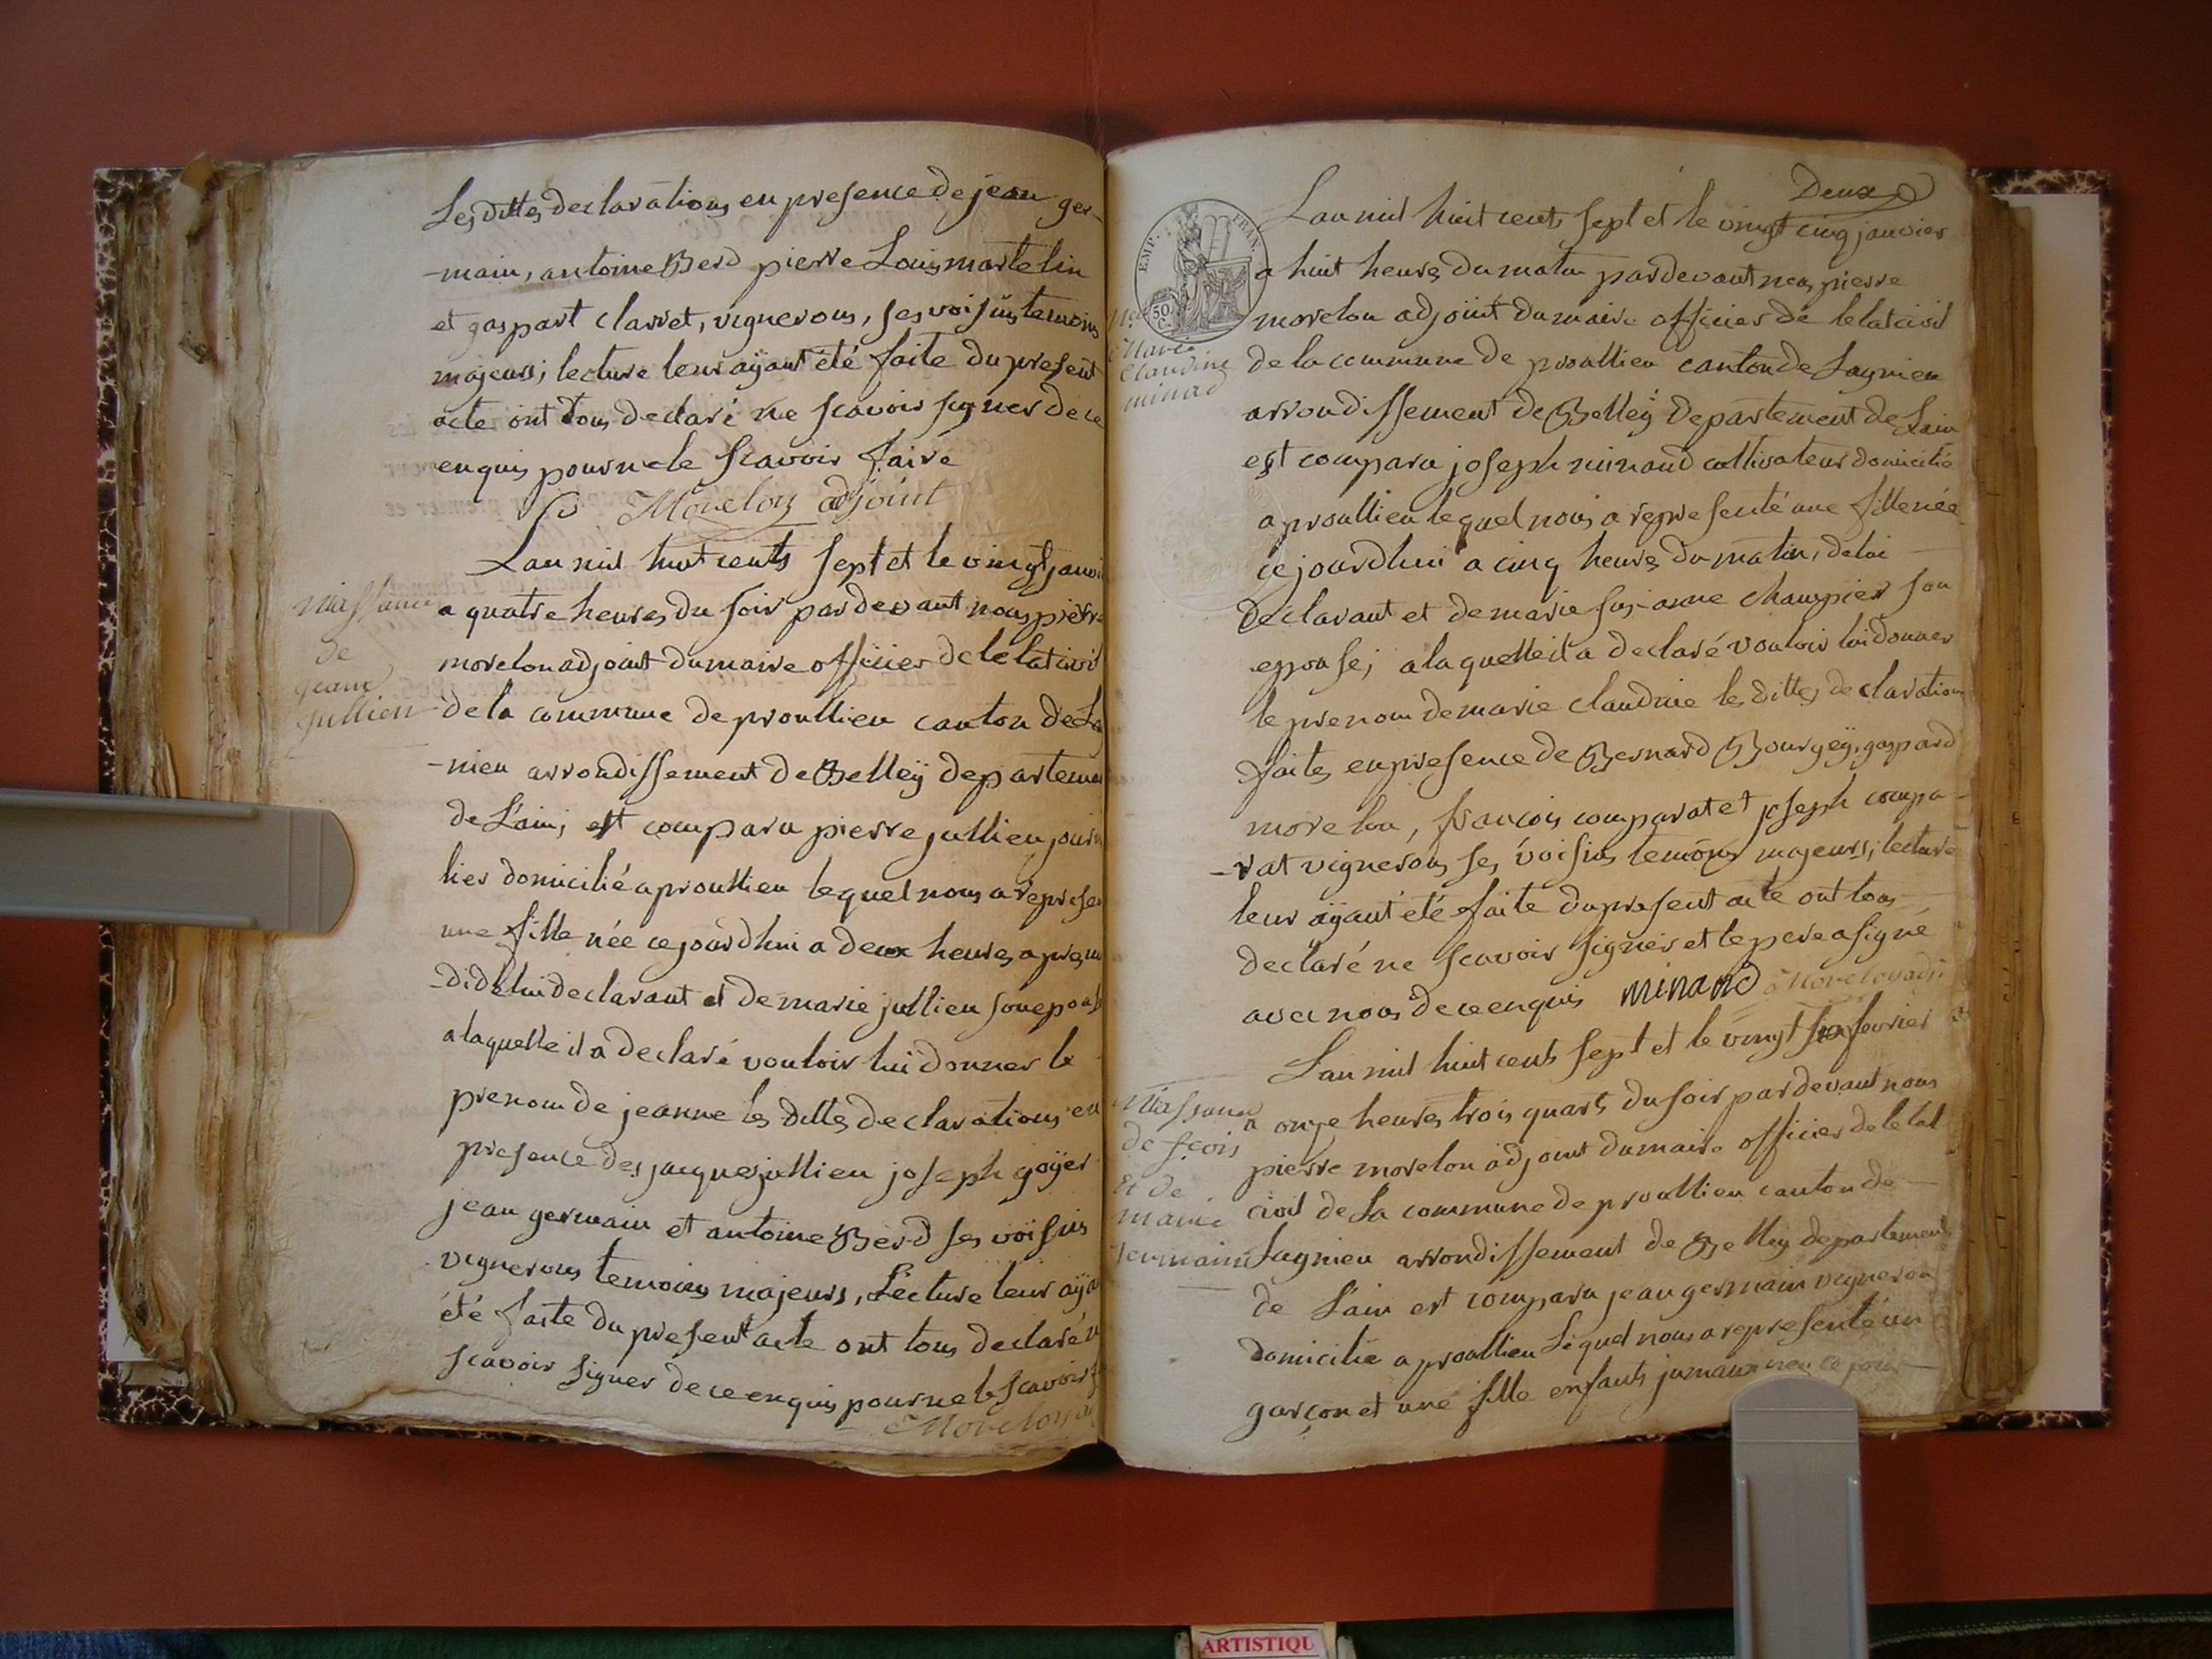 Les dittes declarations en presence de jean ger-
-main, antoine Berd pierre Louis martelin
et gaspart clarret, vignerons, ses voisins temoins
majeurs; lecture leur aÿant été faite du present
acte ont tous declaré ne scavoir signer de ce
enquis pour ne le scavoir faire
Morelon adjoint
Lan mil huit cents sept et le vingt janvi
a quatre heures du soir pardevant nous pierre
morelon adjoint du maire officier de letat civil
de la commune de proullieu canton de La
-nieu arrondissement de Belleÿ departemen
de L'ain, est comparu pierre jullien journ
lier domicilié a proullieu lequel nous a represen
une fille née cejourdhui a deux heures apres mi
-di de lui declarant et de marie jullien son epouse
a laquelle il a declaré vouloir luï donner le
prenom de jeanne les dittes declarations en
presence des jacques jullien joseph goÿer
jean germain et antoine Berd ses voïsins
vignerons temoins majeurs, Lecture leur aÿa
été faite du present acte ont tous declaré n
scavoir signer de ce enquis pour ne le scavoir f
Morelon
Naissance
de
jeanne
jullien
Deux
Lan mil huit cents sept et le vingt cinq janvier
a huit heures du matin pardevant nous pierre
morelon adjoint du maire officier de letat civil
de la commune de proullieu canton de Lagnieu
arrondissement de Belleÿ departement de Lain
est comparu joseph minand cultivateur domicilié
a proullieu lequel nous a representé une fille née
cejourdhui a cinq heures du matin, de lui
declarant et de marie susanne champier son
epouse; a laquelle il a declaré vouloir lui donner
le prenom de marie claudine les dittes declaration
faites en presence de Bernard Bourgeÿ, gaspard
morelon, francois comparat et joseph compa-
-rat vignerons ses voisins temoins majeurs; lecture
leur aÿant été faite du present acte ont tous
declaré ne scavoir signer et le pere a signé
avec nous de ce enquis minand Morelon adj.
Lan mil huit cents sept et le vingt six fevrier
a onze heures trois quarts du soir pardevant nous
pierre morelon adjoint du maire officier de letat
civil de La commune de proullieu canton de
Lagnieu arrondissement de Belley departement
de L'ain est comparu jean germain vigneron
domicilié a proullieu Lequel nous a representé un
garçon et une fille enfants jumaux nés ce jour
EMP. FRAN.
50 C.
Marie
Claudine
minad
Naissance
de fçois
et de
marie
germain
ARTISTIQU